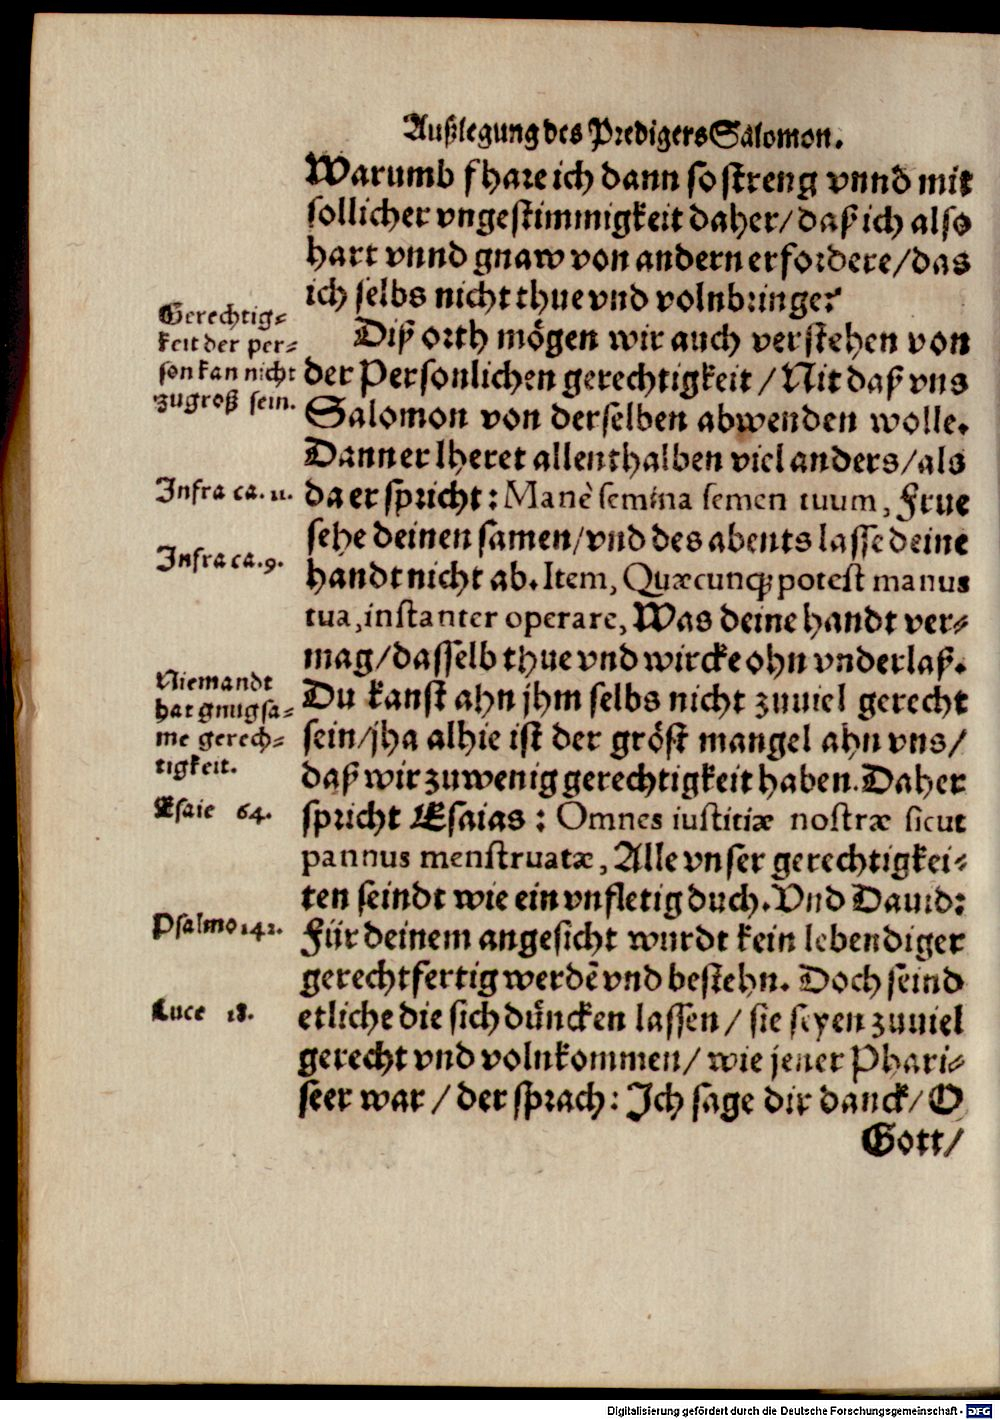 Außlegung des Predigers Salomon.
Warumb fhare ich dann so streng vnnd mit
sollicher vngestimmigkeit daher/ daß ich also
hart vnnd gnaw von andern erfordere/ das
ich selbs nicht thue vnd volnbringe?
Gerechtig-
keit der per-
son kan nicht
zugroß sein.
Diß orth mögen wir auch verstehen von
der Personlichen gerechtigkeit / Nit daß vns
Salomon von derselben abwenden wolle.
Dann er lheret allenthalben viel anders/ als
Infra ca. 11.
da er spricht: Manè semina semen tuum, Frue
sehe deinen samen/ vnd des abents lasse deine
Infra ca. 9.
handt nicht ab. Item, Quæcunq; potest manus
tua, instanter operare, Was deine handt ver-
mag/ dasselb thue vnd wircke ohn vnderlaß.
Niemandt
hat gnugsa-
me gerech-
tigkeit.
Du kanst ahn jhm selbs nicht zuuiel gerecht
sein/ jha alhie ist der gröst mangel ahn vns/
daß wir zuwenig gerechtigkeit haben. Daher
Esaie 64.
spricht Esaias: Omnes iustitiæ nostræ sicut
pannus menstruatæ, Alle vnser gerechtigkei-
ten seindt wie ein vnfletig duch. Vnd Dauid:
Psalmo 142.
Für deinem angesicht wurdt kein lebendiger
gerechtfertig werdē vnd bestehn. Doch seind
Luce 18.
etliche die sich düncken lassen/ sie seyen zuuiel
gerecht vnd volnkommen/ wie jener Phari-
seer war / der sprach: Ich sage dir danck/ O
Gott/
Digitalisierung gefördert durch die Deutsche Forschungsgemeinschaft - DFG